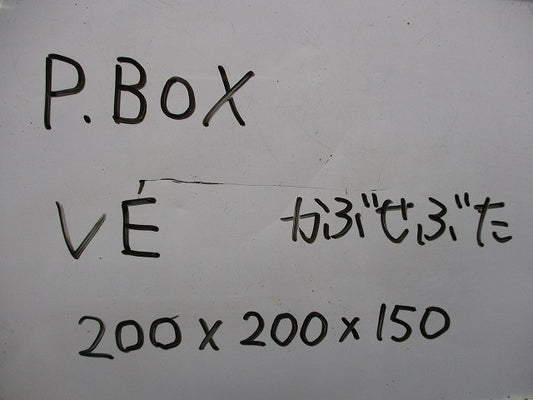 P.BOX
VÉ かぶせぶた
200×200×150